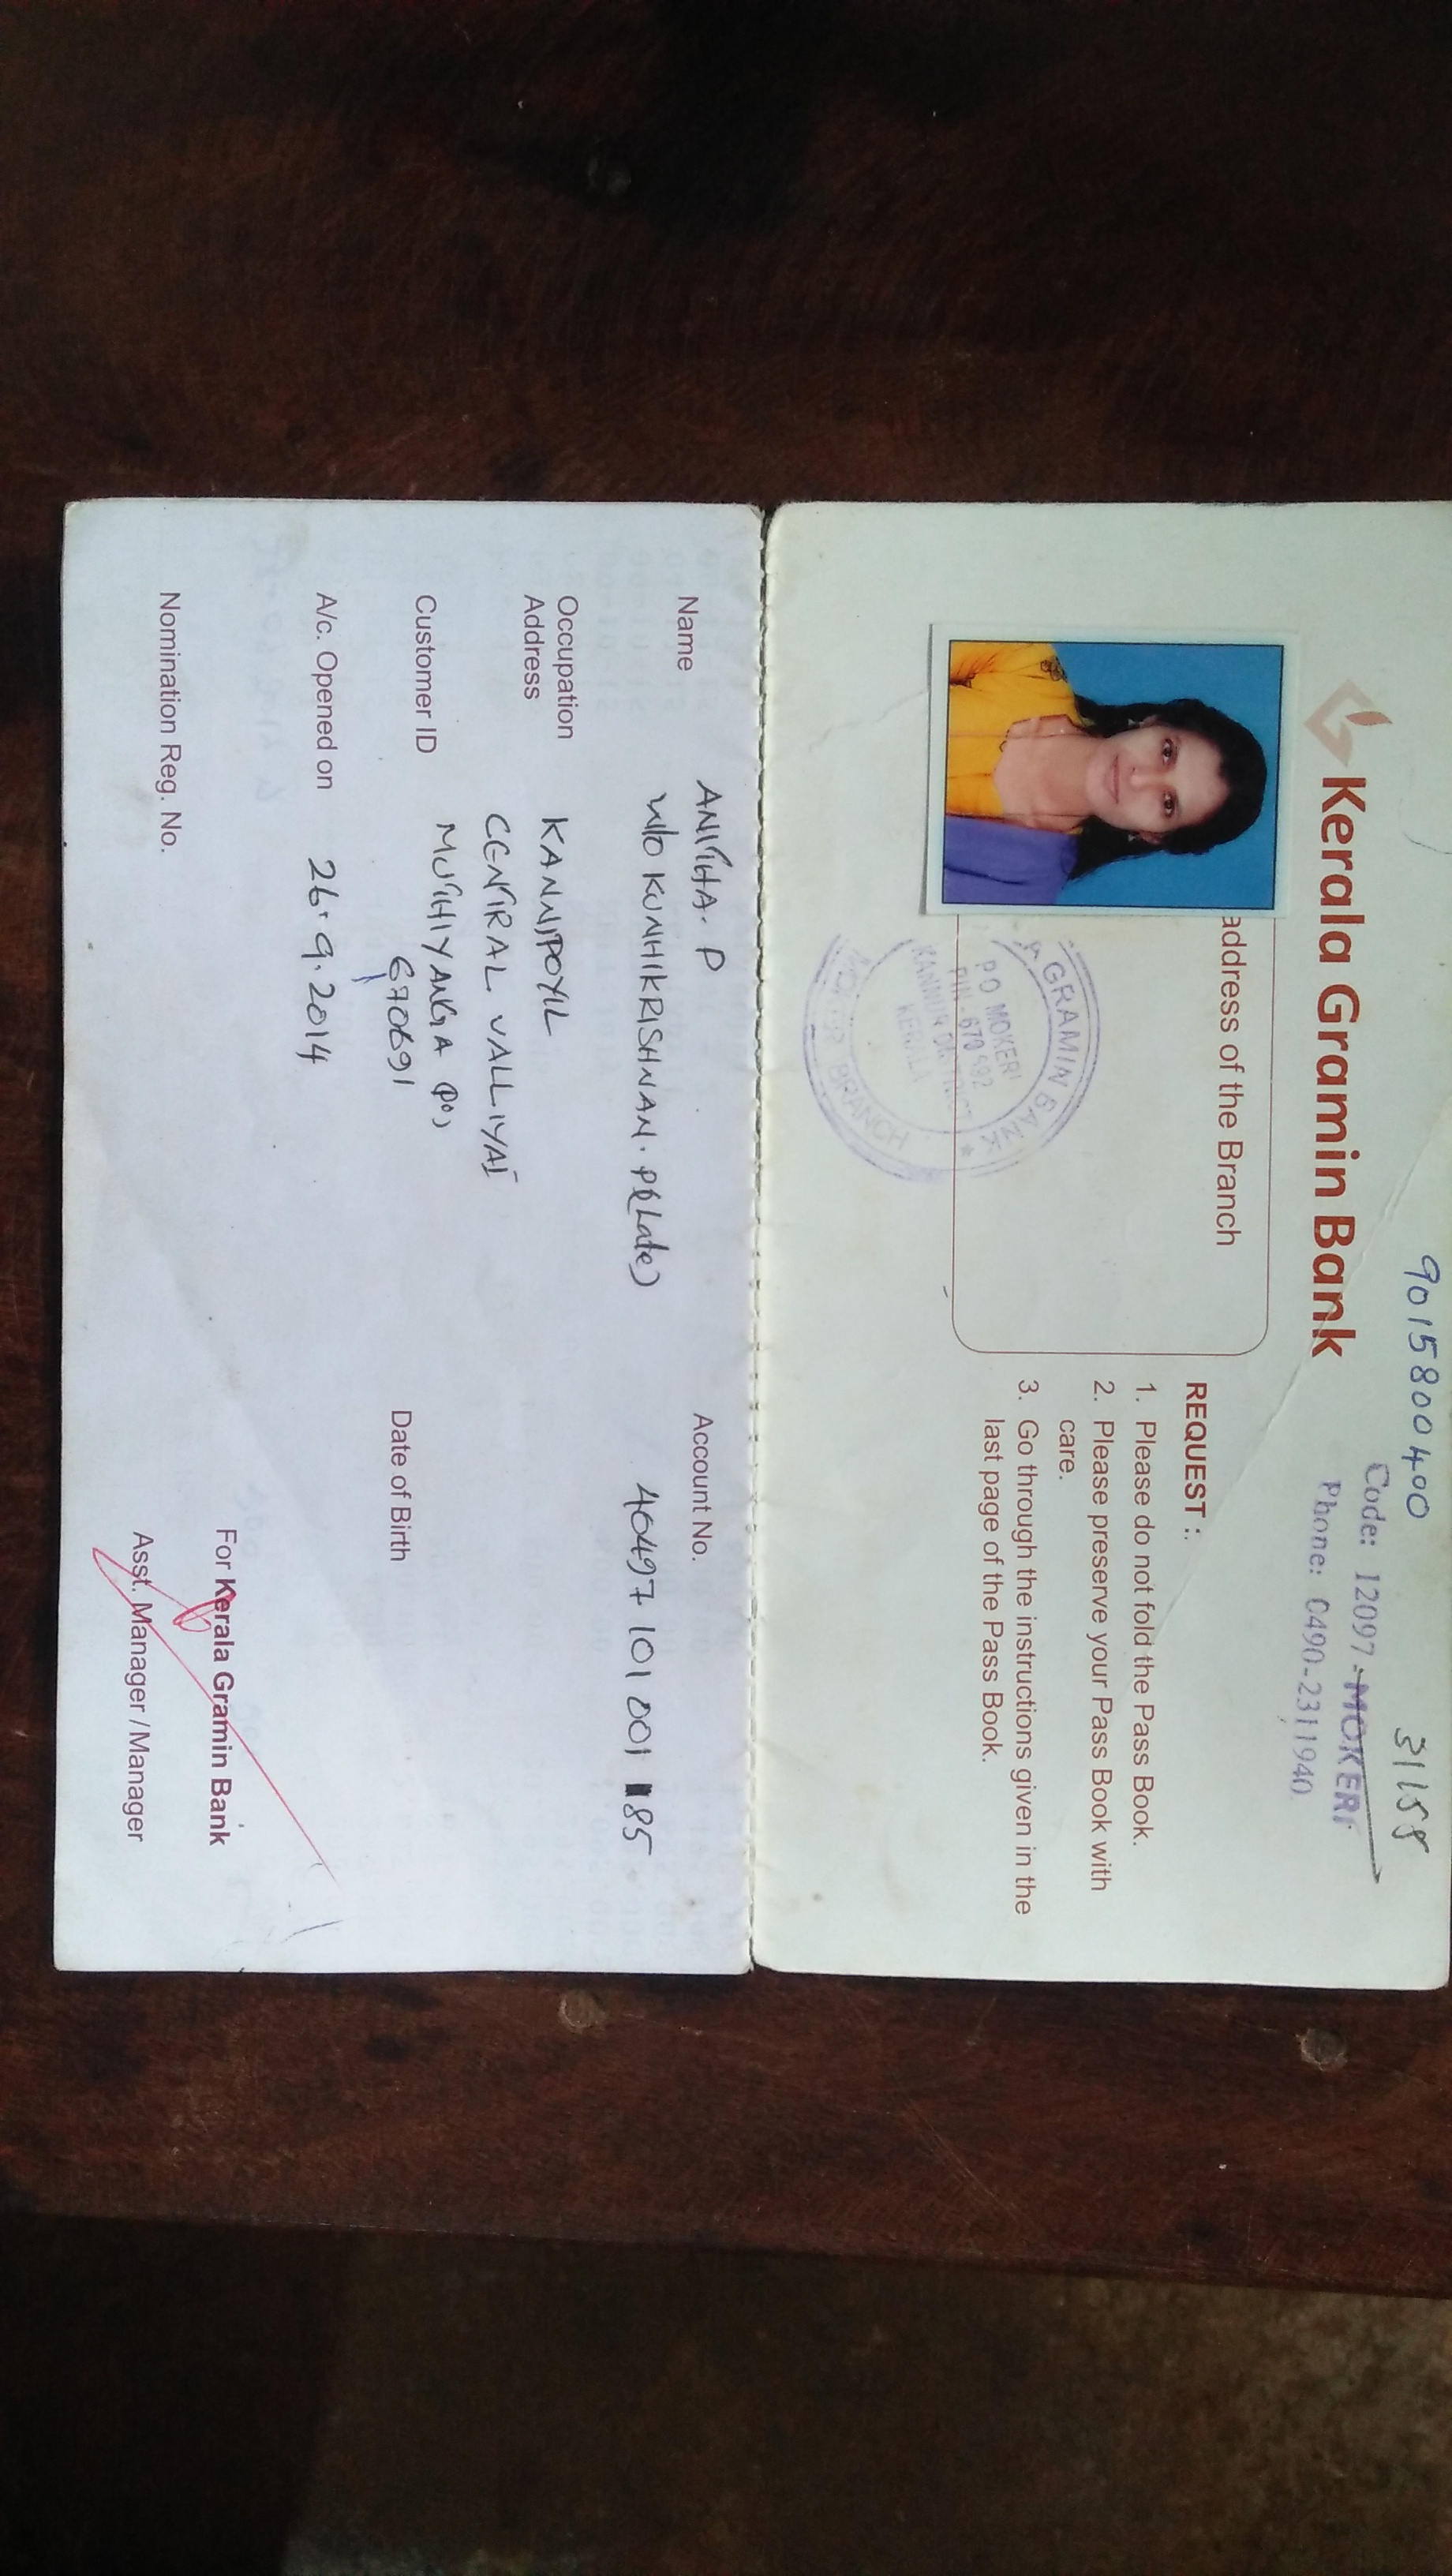 9015800400
31158
Code: 12097 - MOKERI
Phone: 0490-2311940
Kerala Gramin Bank
address of the Branch
GRAMIN BANK
P O MOKERI
PIN 670 692
KANNUR DISTRICT
KERALA
BRANCH
REQUEST :
1. Please do not fold the Pass Book.
2. Please preserve your Pass Book with
care.
3. Go through the instructions given in the
last page of the Pass Book.
Name ANITHA. P
Account No.
W/o KUNHIKRISHNAN. P (Late)
40497 101 001 85
Occupation
Address KANNIPOYIL
CENTRAL VALLIYAI
MUTHIYANGA (PO)
Customer ID
670691
Date of Birth
A/c. Opened on 26.9.2014
For Kerala Gramin Bank
Nomination Reg. No.
Asst. Manager / Manager